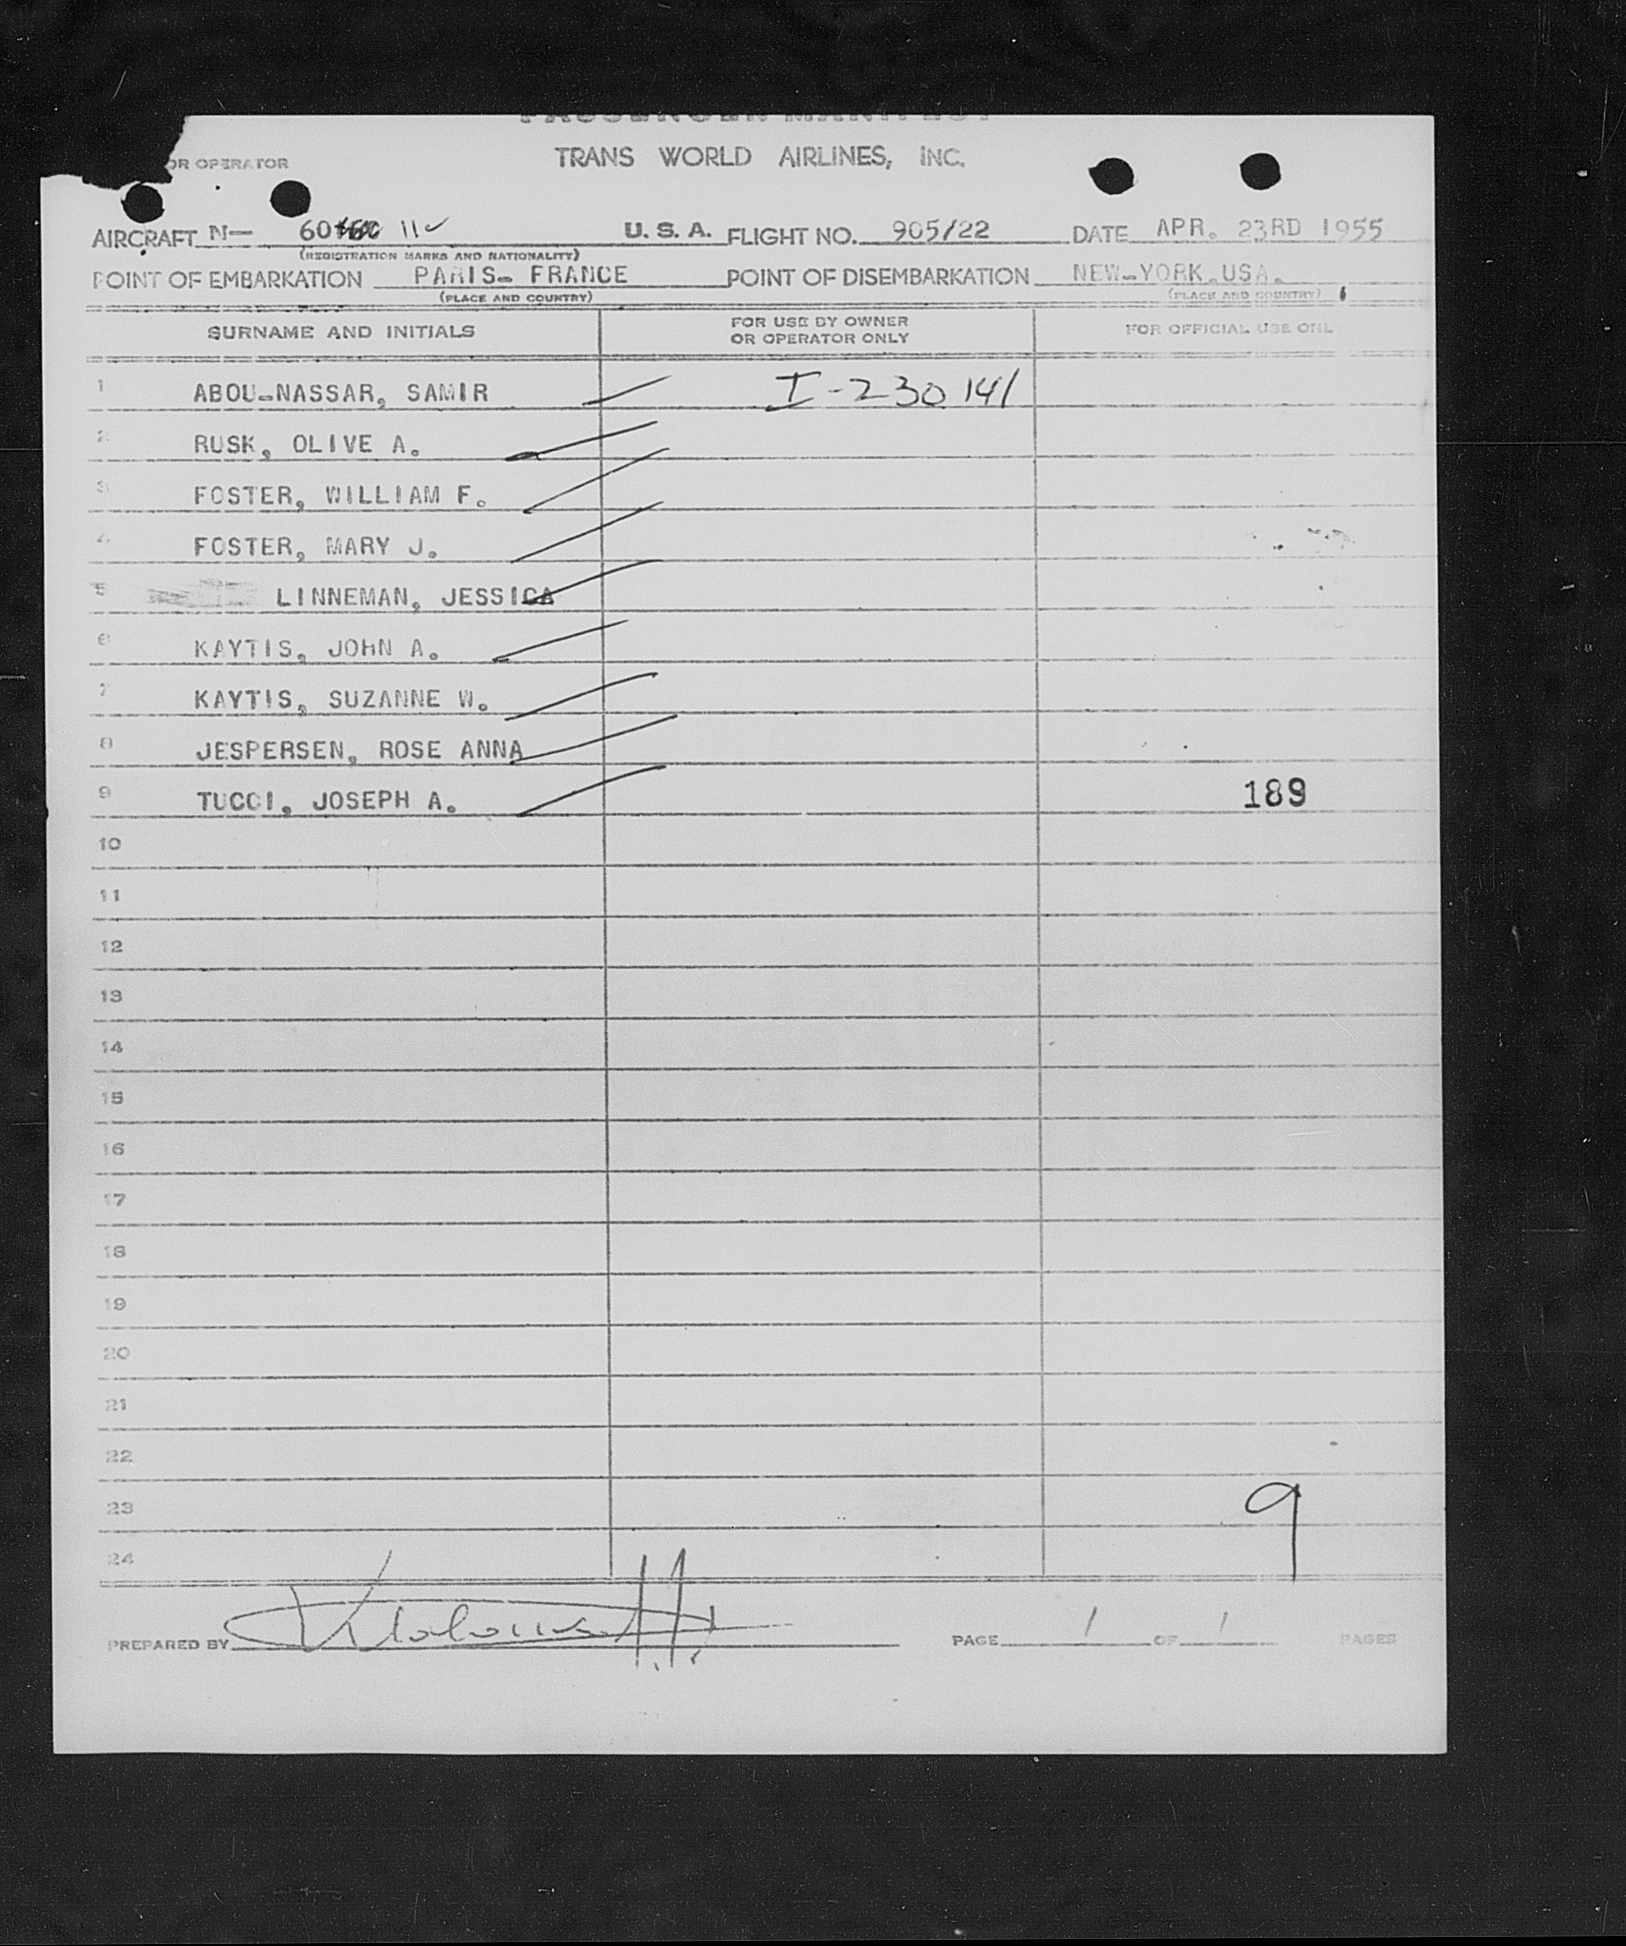 PASSENGER MANIFEST
OR OPERATOR
TRANS WORLD AIRLINES, INC.
AIRCRAFT N- 60 11 U. S. A. FLIGHT NO. 905/22 DATE APR. 23RD 1955
(REGISTRATION MARKS AND NATIONALITY)
POINT OF EMBARKATION PARIS- FRANCE POINT OF DISEMBARKATION NEW-YORK.USA.
(PLACE AND COUNTRY) (PLACE AND COUNTRY)
SURNAME AND INITIALS FOR USE BY OWNER OR OPERATOR ONLY FOR OFFICIAL USE ONL
1 ABOU-NASSAR, SAMIR I-230 141
2 RUSK, OLIVE A.
3 FOSTER, WILLIAM F.
4 FOSTER, MARY J.
5 LINNEMAN, JESSICA
6 KAYTIS, JOHN A.
7 KAYTIS, SUZANNE W.
8 JESPERSEN, ROSE ANNA
9 TUCCI, JOSEPH A. 189
10
11
12
13
14
15
16
17
18
19
20
21
22
23 9
24
PREPARED BY PAGE 1 OF 1 PAGES